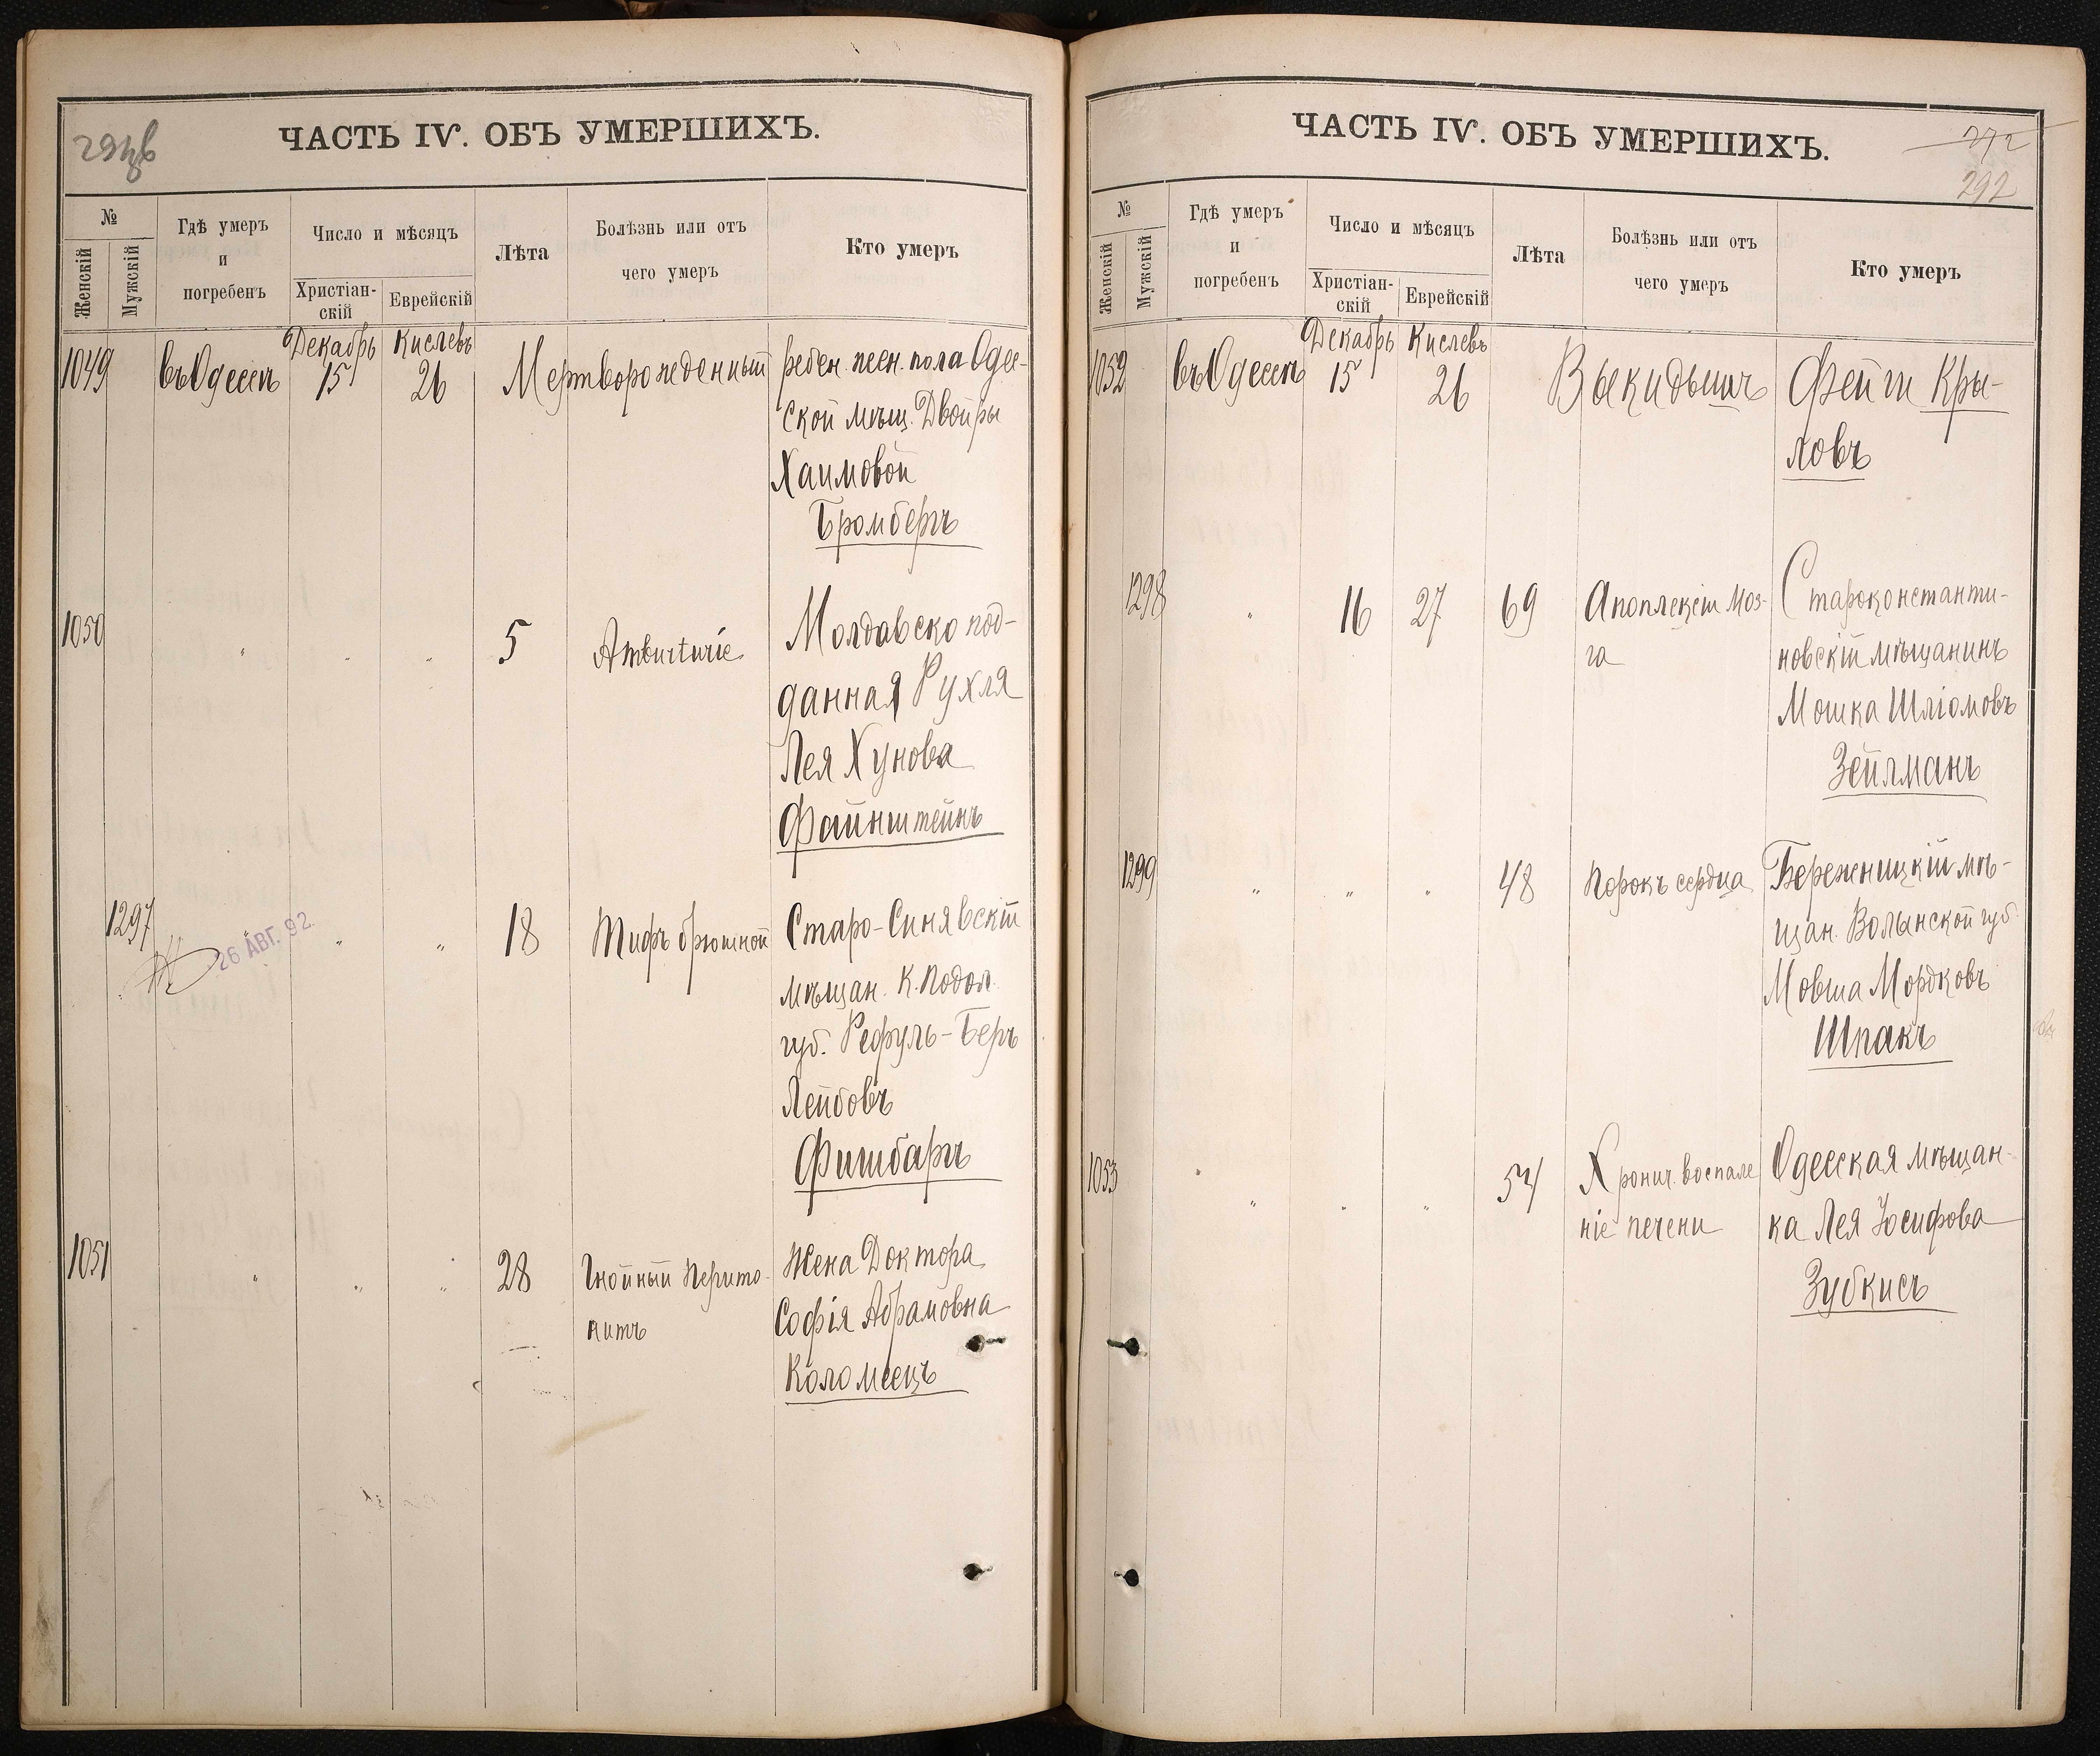 ЧАСТЬ IV. ОБЪ УМЕРШИХЪ.
№
Женскій
Мужскій
Гдѣ умеръ
и
погребенъ
Число и мѣсяцъ
Христіан-
скій
Еврейскій
Лѣта
Болѣзнь или отъ
чего умеръ
Кто умеръ
Декабрь Кислевъ
1049 въ Одессѣ 15 26 Мертворожденный ребен. жен. пола Одес-
ской мѣщ. Двойры
Хаимовой
Бромбергъ
1050 " " " 5 Молдавско под-
данная Рухля
Лея Хунова
Файнштейнъ
1297 " " " 18 Тифъ брюшной Старо-Синявскій
26 АВГ. 92.
мѣщан. К. Подол.
губ. Рефуль-Беръ
Лейбовъ
Фишбаргъ
1051 " " " 28 Гнойный Перито-
нитъ
Жена Доктора
Софія Абрамовна
Коломеецъ
ЧАСТЬ IV. ОБЪ УМЕРШИХЪ.
272
292
№
Женскій
Мужскій
Гдѣ умеръ
и
погребенъ
Число и мѣсяцъ
Христіан-
скій
Еврейскій
Лѣта
Болѣзнь или отъ
чего умеръ
Кто умеръ
Декабрь Кислевъ
1052 въ Одессѣ 15 26 Выкидышъ Фейги Кры-
ловъ
1298 " 16 27 69 Апоплексія моз-
га
Староконстанти-
новскій мѣщанинъ
Мошка Шліомовъ
Зейлманъ
1299 " " " 48 Порокъ сердца Бережницкій мѣ-
щан. Волынской губ.
Мовша Мордковъ
Шпакъ
1053 " " " 54 Хронич. воспале
ніе печени
Одесская мѣщан-
ка Лея Іосифова
Зубкисъ